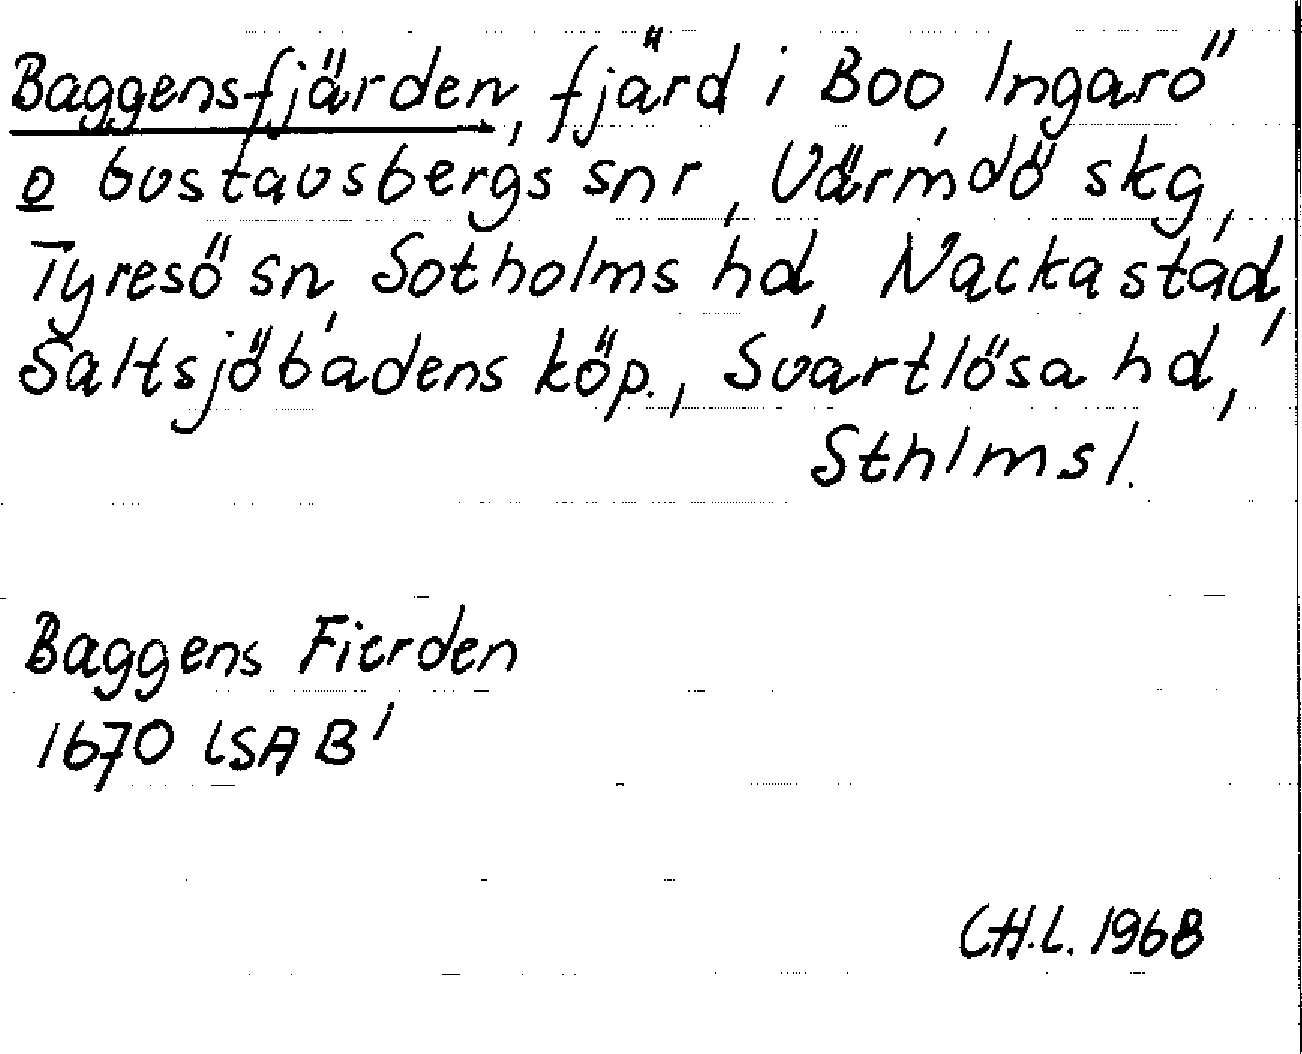 Baggensfjärden, fjärd i Boo, Ingarö
o Gustavsbergs snr, Värmdö skg,
Tyresö sn, Sotholms hd, Nacka stad,
Saltsjöbadens köp., Svartlösa hd,
Sthlms l.
Baggens Fierden
1670 LSA B1
CH.L. 1968